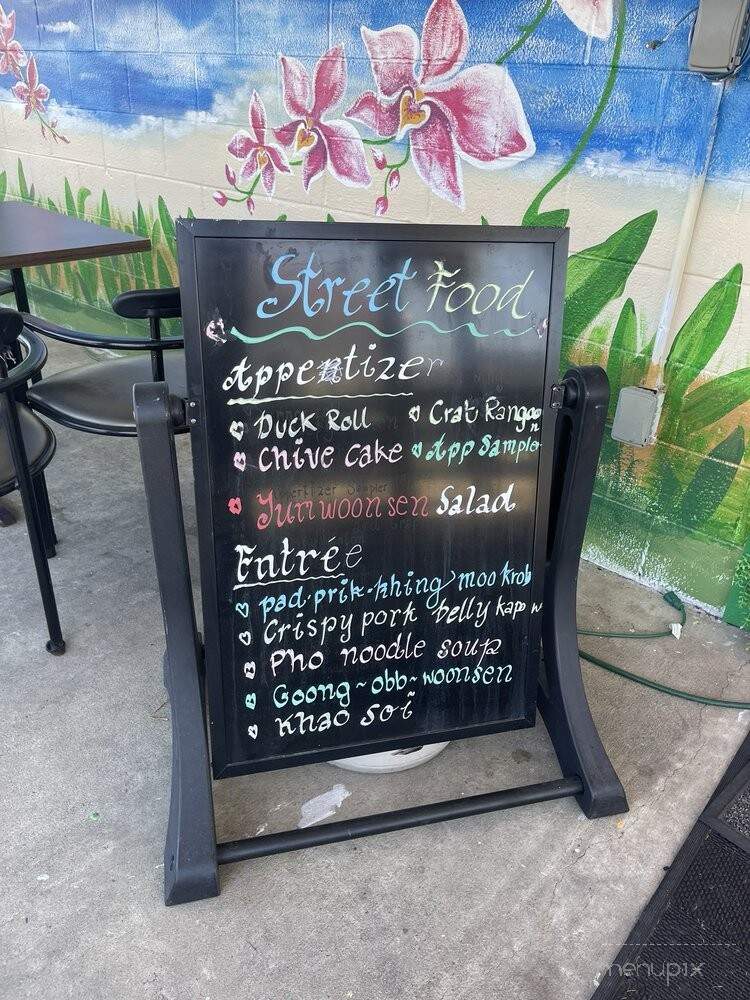 Street Food
Appentizer
Duck Roll Crat Rangoon
Chive Cake App Sample
Yumwoonsen Salad
Entrée
pad-prik-khing moo krob
Crispy pork belly kapow
Pho noodle soup
Goong~obb~woonsen
Khao Soi
menupix